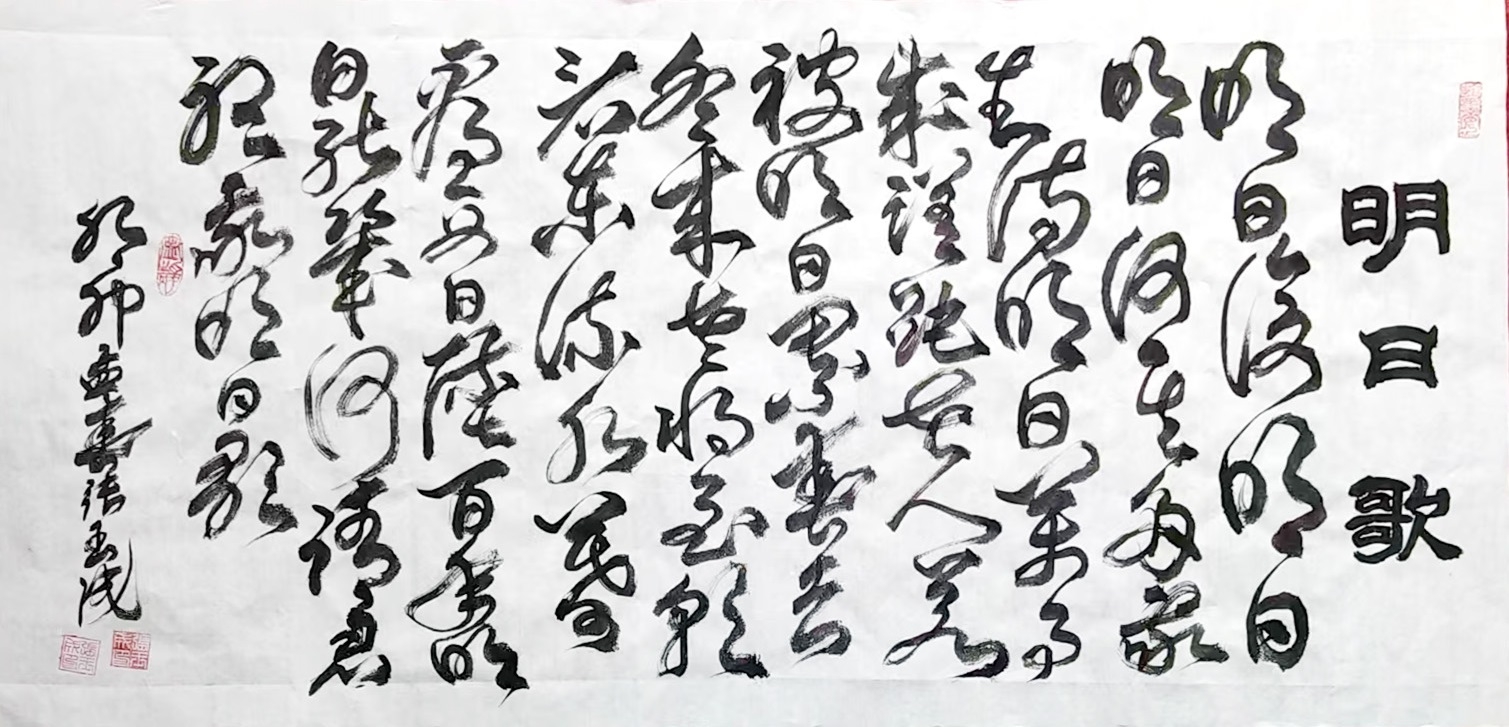 明日歌
明日復明日
明日何其多我
生待明日萬事
成蹉跎世人若
被明日累春去
秋来老将至朝
看東流水暮
看西日墜百年明
日能幾何請君
聽我明日歌
癸卯 書張玉成